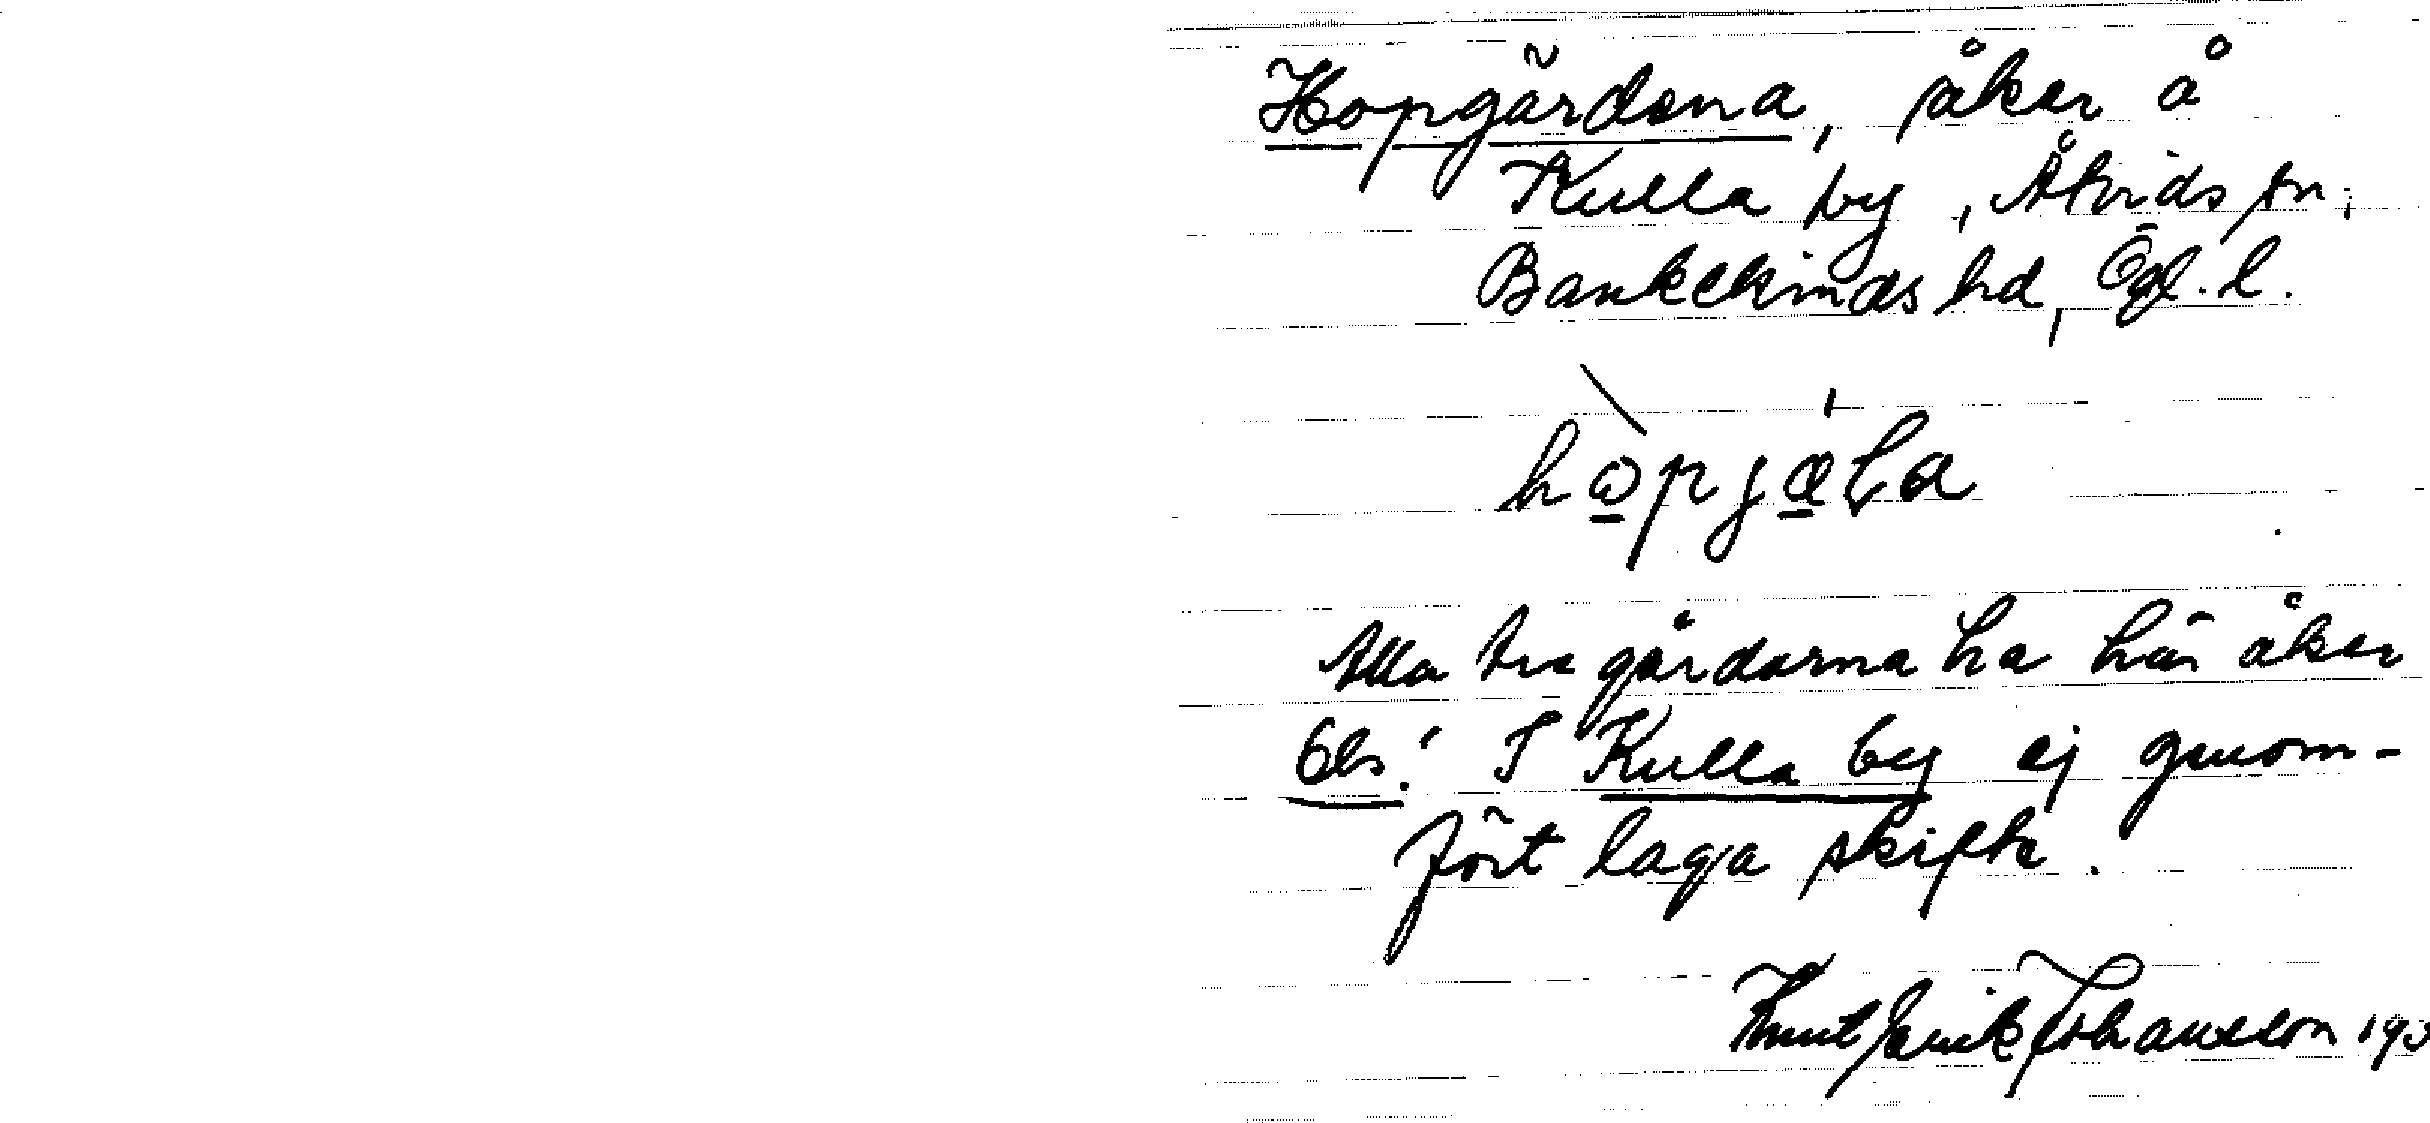 Hopgärdena, åker å
Kulla by, Åtvids sn,
Bankekinds hd, Ögl. l.
Alla tre gårdarna ha här åker
Obs! I Kulla by ej genom-
fört laga skifte.
Knut Henrik Johansson 193